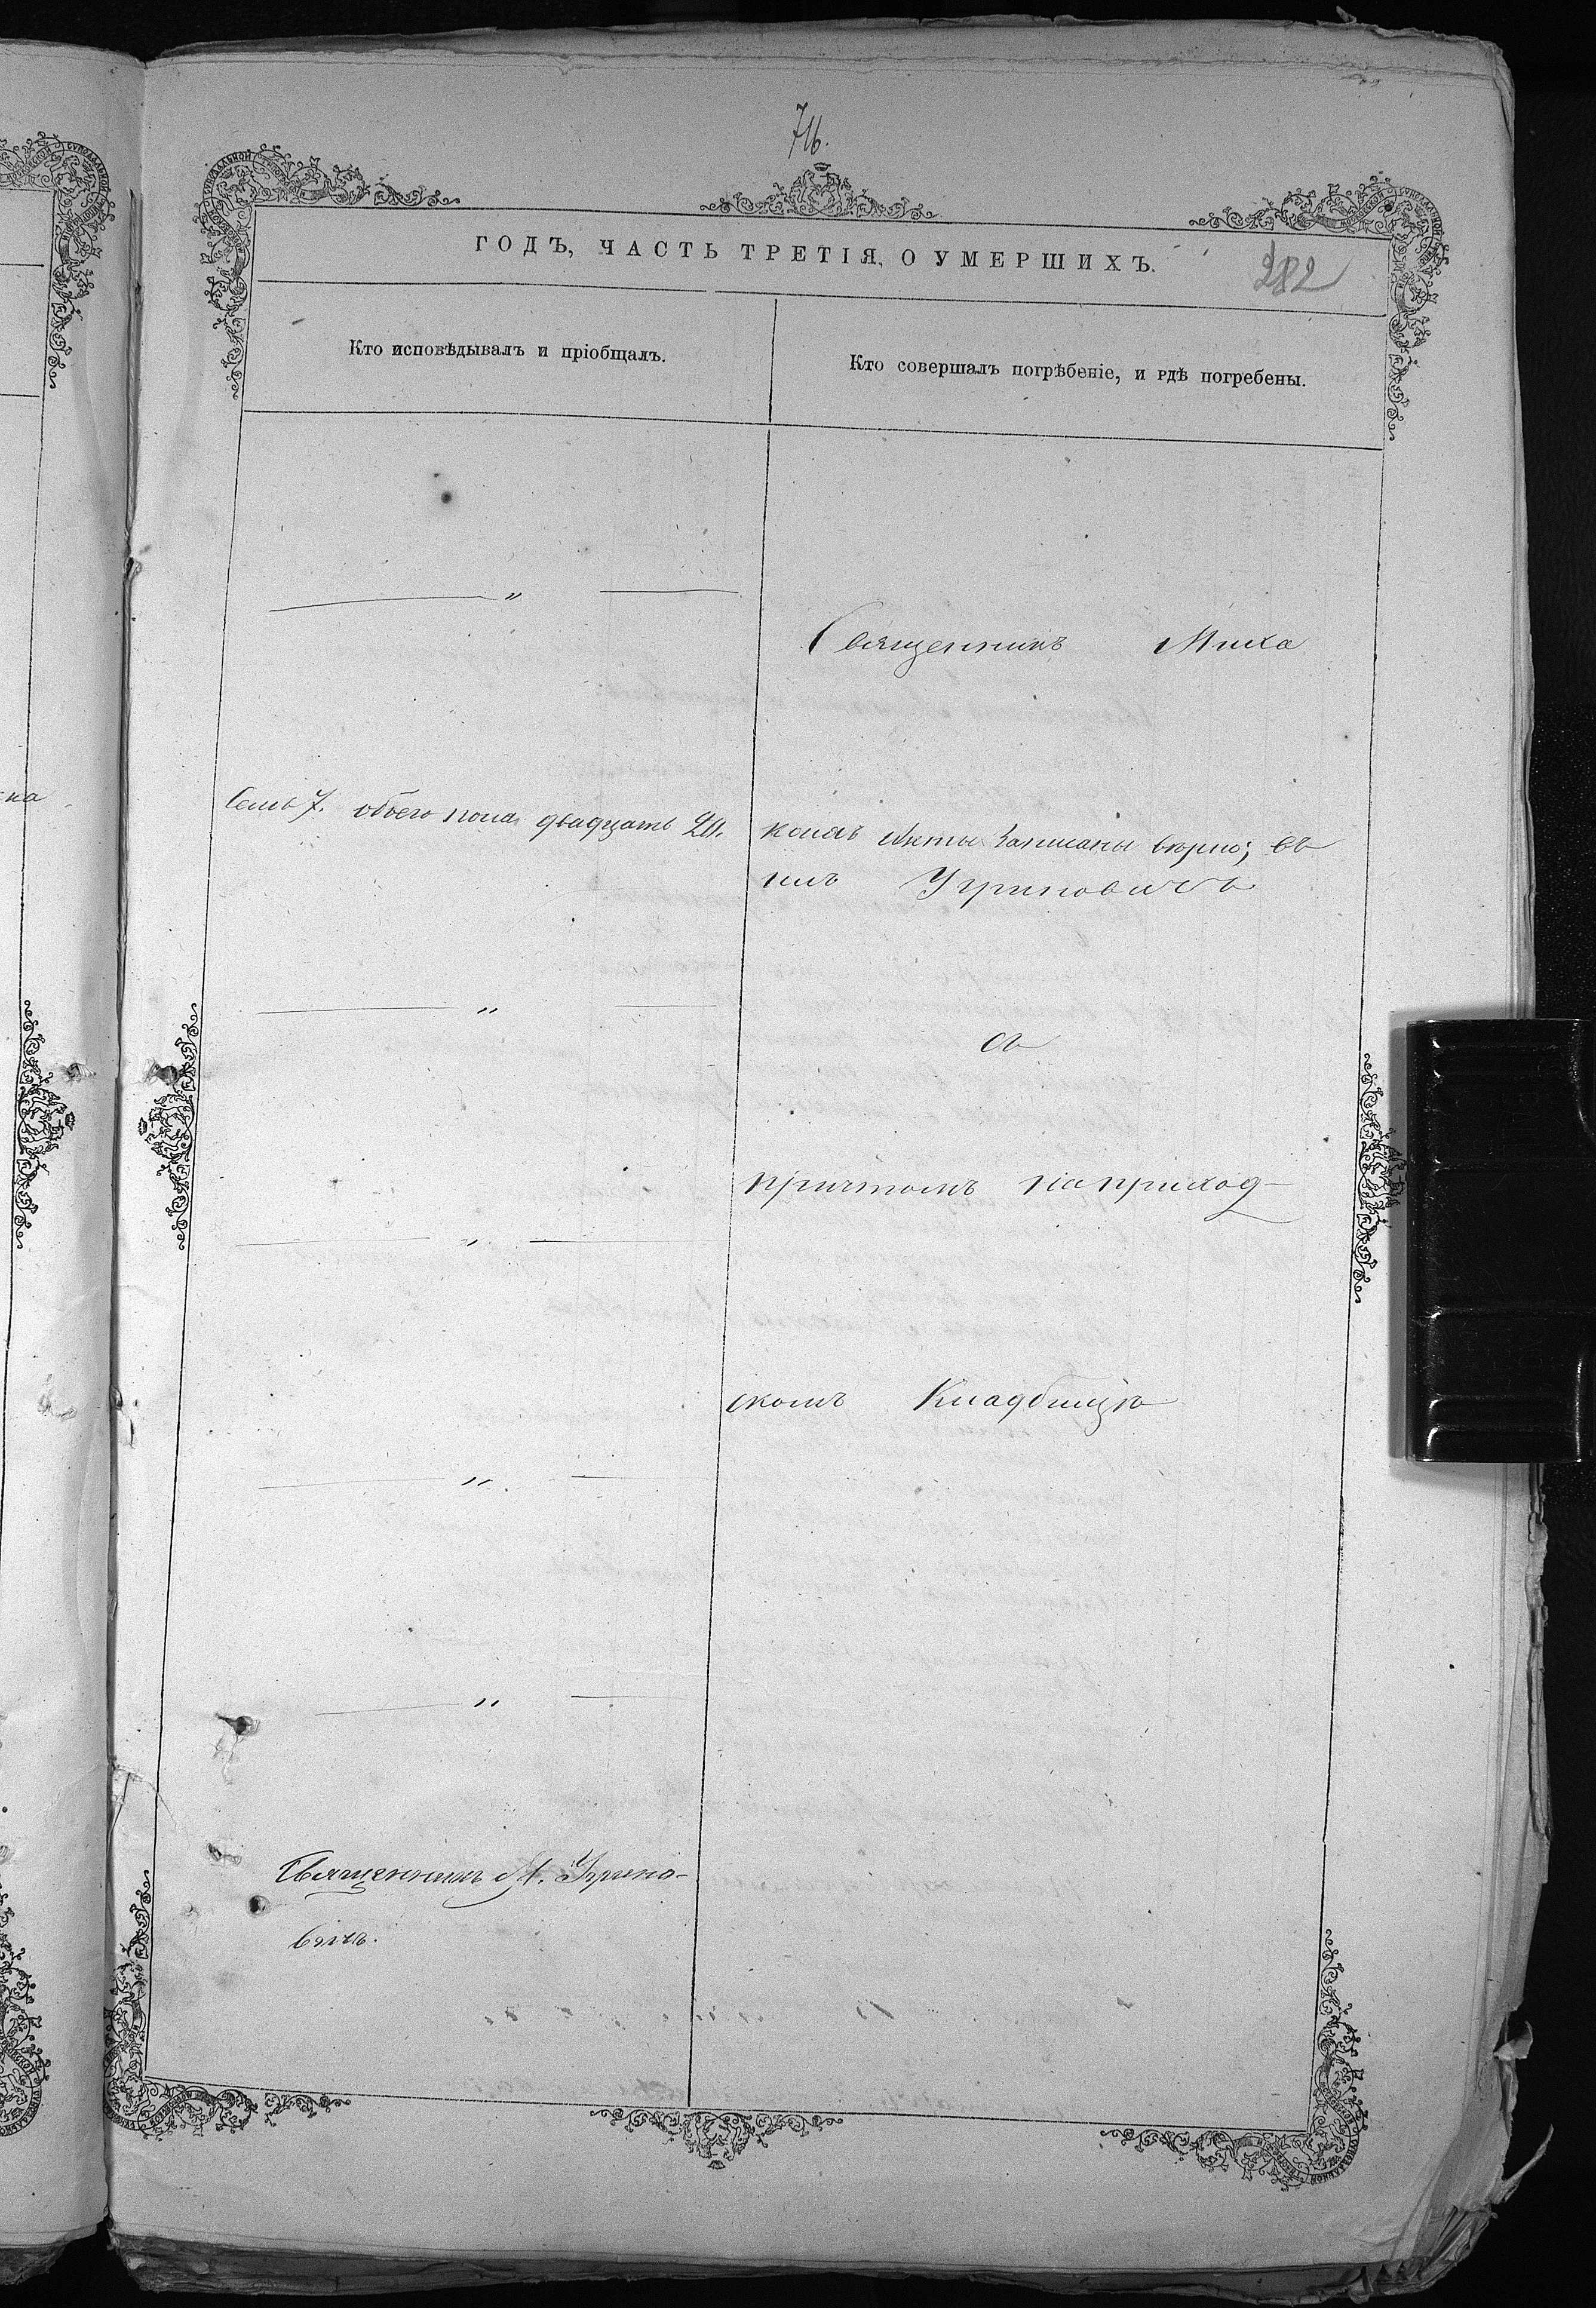 716.
ГОДЪ, ЧАСТЬ ТРЕТІЯ, О УМЕРШИХЪ.
282
Кто исповѣдывалъ и пріобщалъ.
Кто совершалъ погрѣбеніе, и гдѣ погребены.
Священникъ Миха
ка
Семь 7. обоего пола двадцать 20.
коихъ Акты записаны вѣрно; въ
илъ Угриновичъ
съ
причтомъ на приход-
скомъ Кладбищѣ
Священникъ М. Угрино-
вичъ.